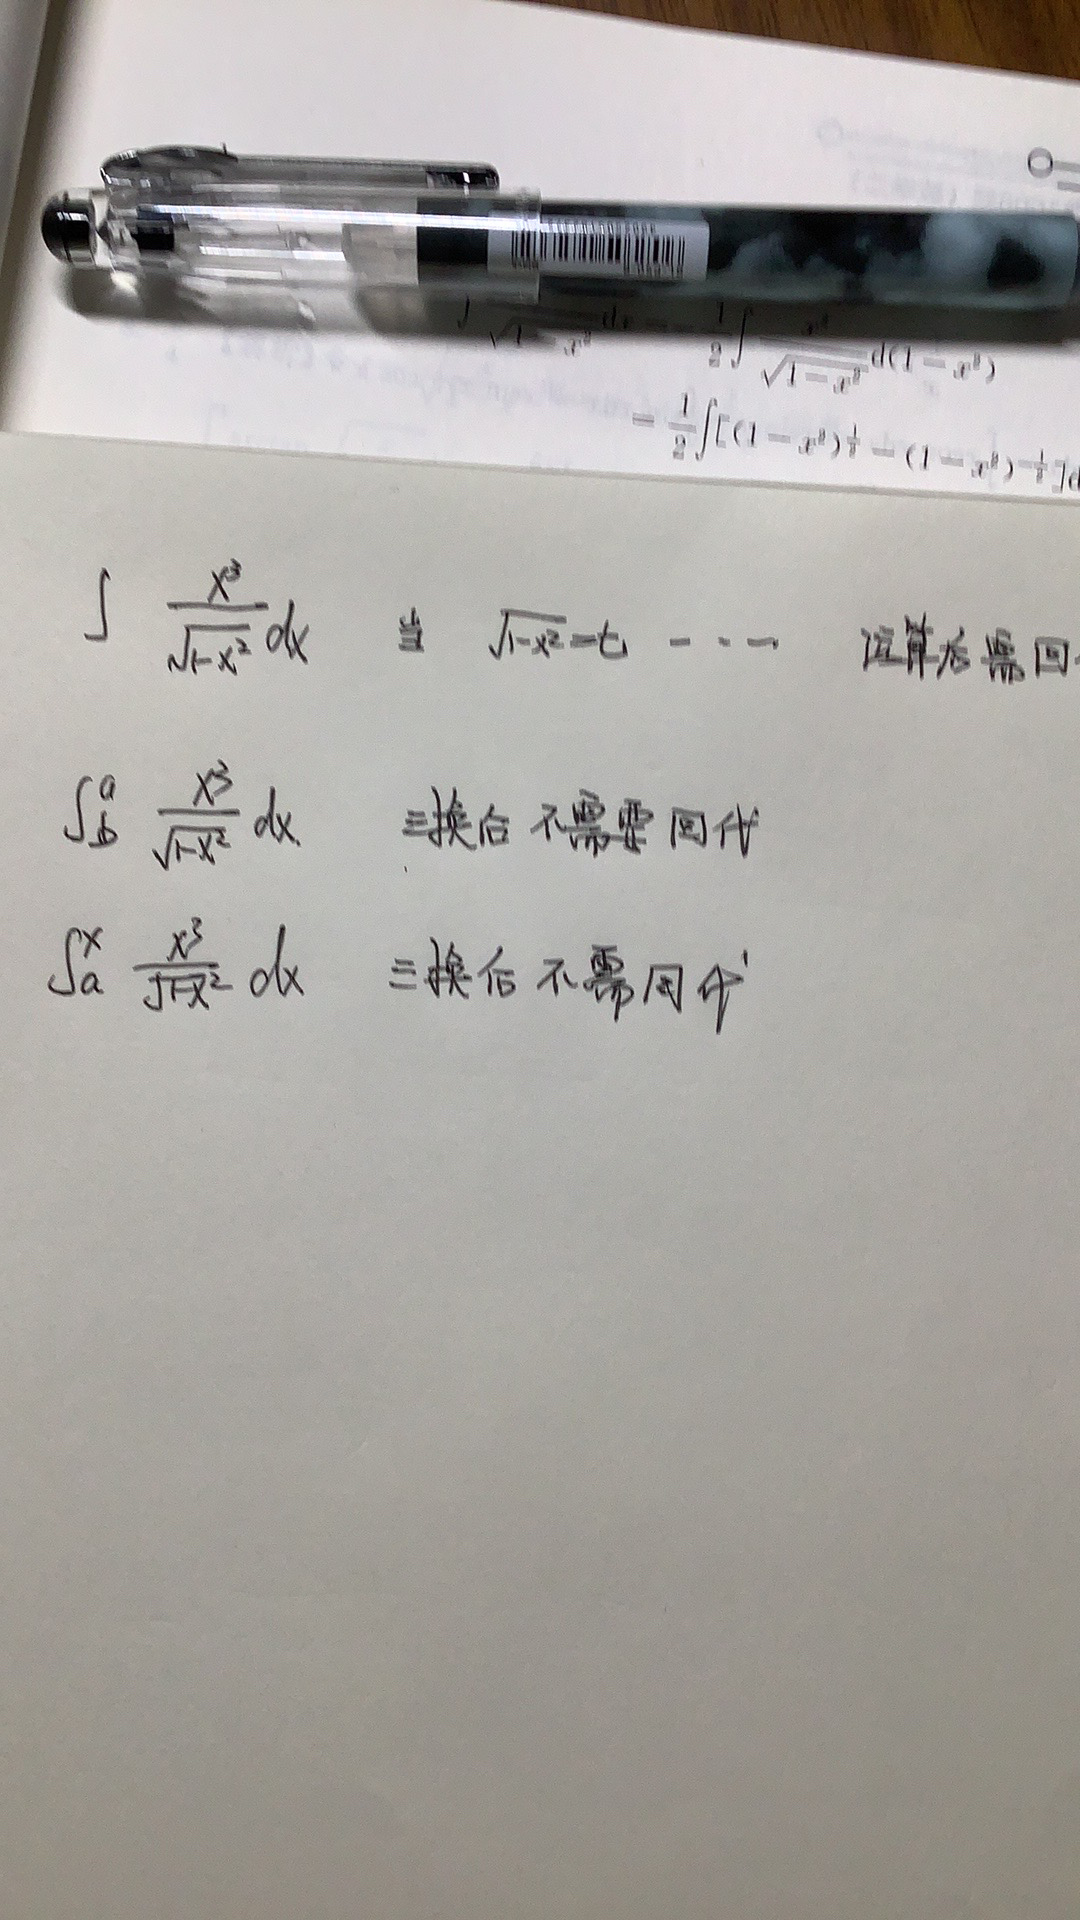 = 1/2 ∫[(1 − x²)^{1/2} − (1 − x²)^{-1/2}]d
∫ x³/√(1-x²) dx 当 √(1-x²) = t - - - 运算后需回
∫_b^a x³/√(1-x²) dx 三换后不需要回代
∫_a^x x³/√(1-x²) dx 三换后不需回代